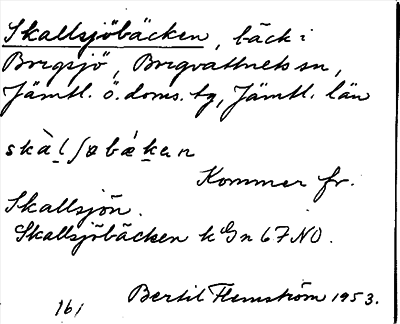 Skallsjöbäcken, bäck i
Borgsjö, Borgvattnets sn,
Jämtl. ö. doms. tg, Jämtl. län
skàl̲ʃøbák̲en
Kommer fr.
Skallsjön.
Skallsjöbäcken k Gn 67 NO.
161 Bertil Flemström 1953.